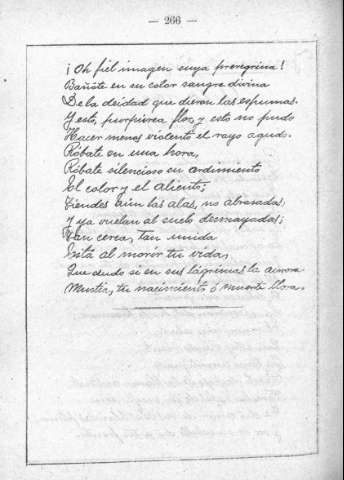 — 266 —
¡Oh fiel imagen suya peregrina!
Bañóte en su color sangre divina
De la deidad que dieron las espumas.
Y esto, purpúrea flor, y esto no pudo
Hacer menos violento el rayo agudo.
Róbate en una hora,
Róbate silencioso su ardimiento
El color y el aliento;
Tiendes aún las alas, no abrasadas,
Y ya vuelan al suelo desmayadas;
Tan cerca, tan unida
Está al morir tu vida,
Que dudo si en sus lágrimas la aurora
Mustia, tu nacimiento ó muerte llora.